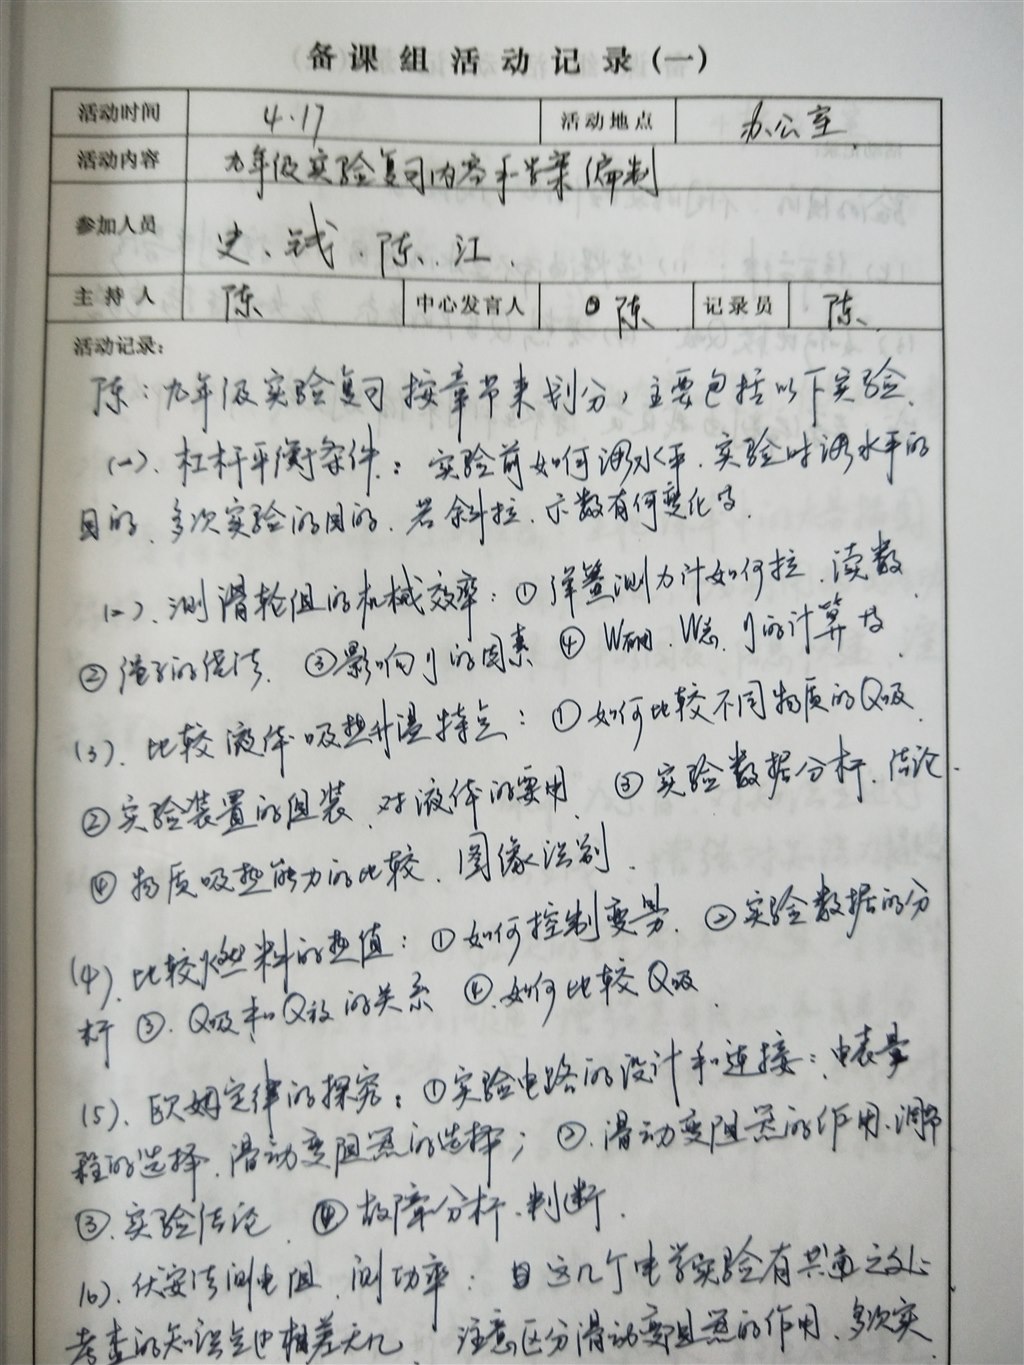 备课组活动记录(一)
活动时间 4.17 活动地点 办公室
活动内容 九年级实验复习内容和学案编制
参加人员 史、钱、陈、江.
主持人 陈 中心发言人 陈 记录员 陈
活动记录:
陈:九年级实验复习按章节来划分,主要包括以下实验.
(一)、杠杆平衡条件:实验前如何调水平、实验时调水平的
目的、多次实验的目的、若斜拉、示数有何变化等.
(二)、测滑轮组的机械效率:①弹簧测力计如何拉、读数
②绳子的绕法、③影响η的因素 ④W有用、W总、η的计算等.
(3)、比较液体吸热升温特点:①如何比较不同物质的Q吸
②实验装置的组装、对液体的要求、③实验数据分析、结论.
④物质吸热能力的比较、图像识别.
(4)、比较燃料的热值:①如何控制变量、②实验数据的分
析 ③、Q吸和Q放的关系 ④、如何比较Q吸.
(5)、欧姆定律的探究:①实验电路的设计和连接:电表量
程的选择、滑动变阻器的选择;②、滑动变阻器的作用、调节
③、实验结论、④故障分析、判断.
(6)、伏安法测电阻、测功率:这几个电学实验有共通之处
考查的知识点也相差无几、注意区分滑动变阻器的作用、多次实